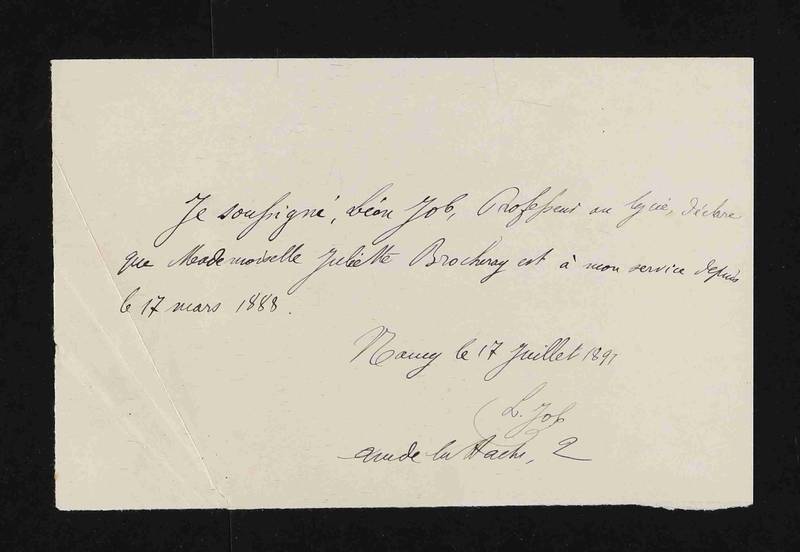 Je soussigné, Léon Job, Professeur au lycée, déclare
que Mademoiselle Juliette Brocheray est à mon service depuis
le 17 mars 1888.
Nancy le 17 Juillet 1891
L. Job
rue de la Hache, 2